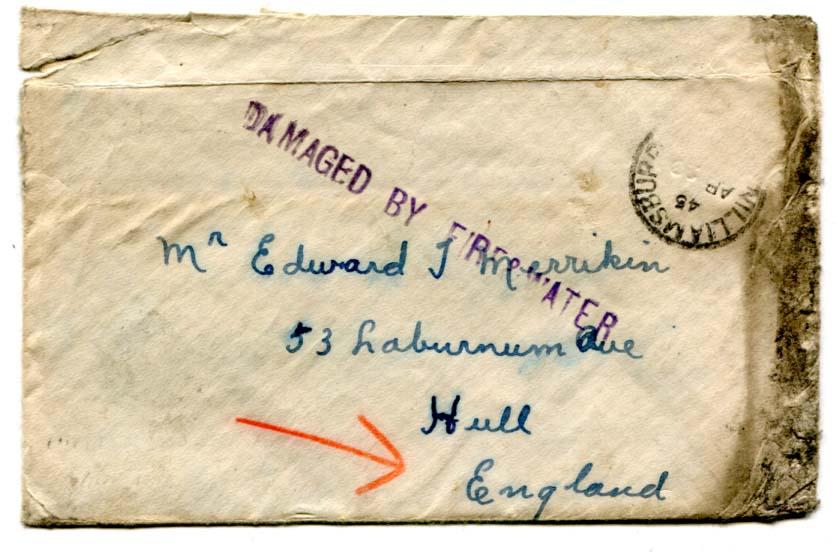 DAMAGED BY FIRE & WATER
WILLIAMSBURG
AP
45
Mr Edward J Merrikin
53 Laburnum Ave
Hull
England